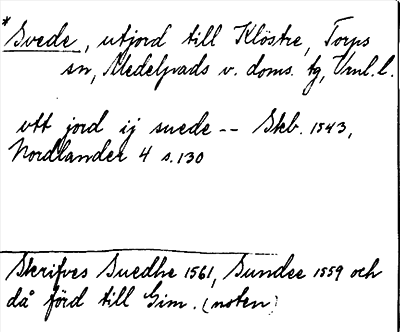 * Svede, utjord till Klöstre, Torps
sn, Medelpads v. doms. tg, Vnl. l.
utt jord ij suede -- Skb. 1543,
Nordlander 4 s. 130
Skrifves Suedhe 1561, Sundee 1559 och
då förd till Gim. (noten)